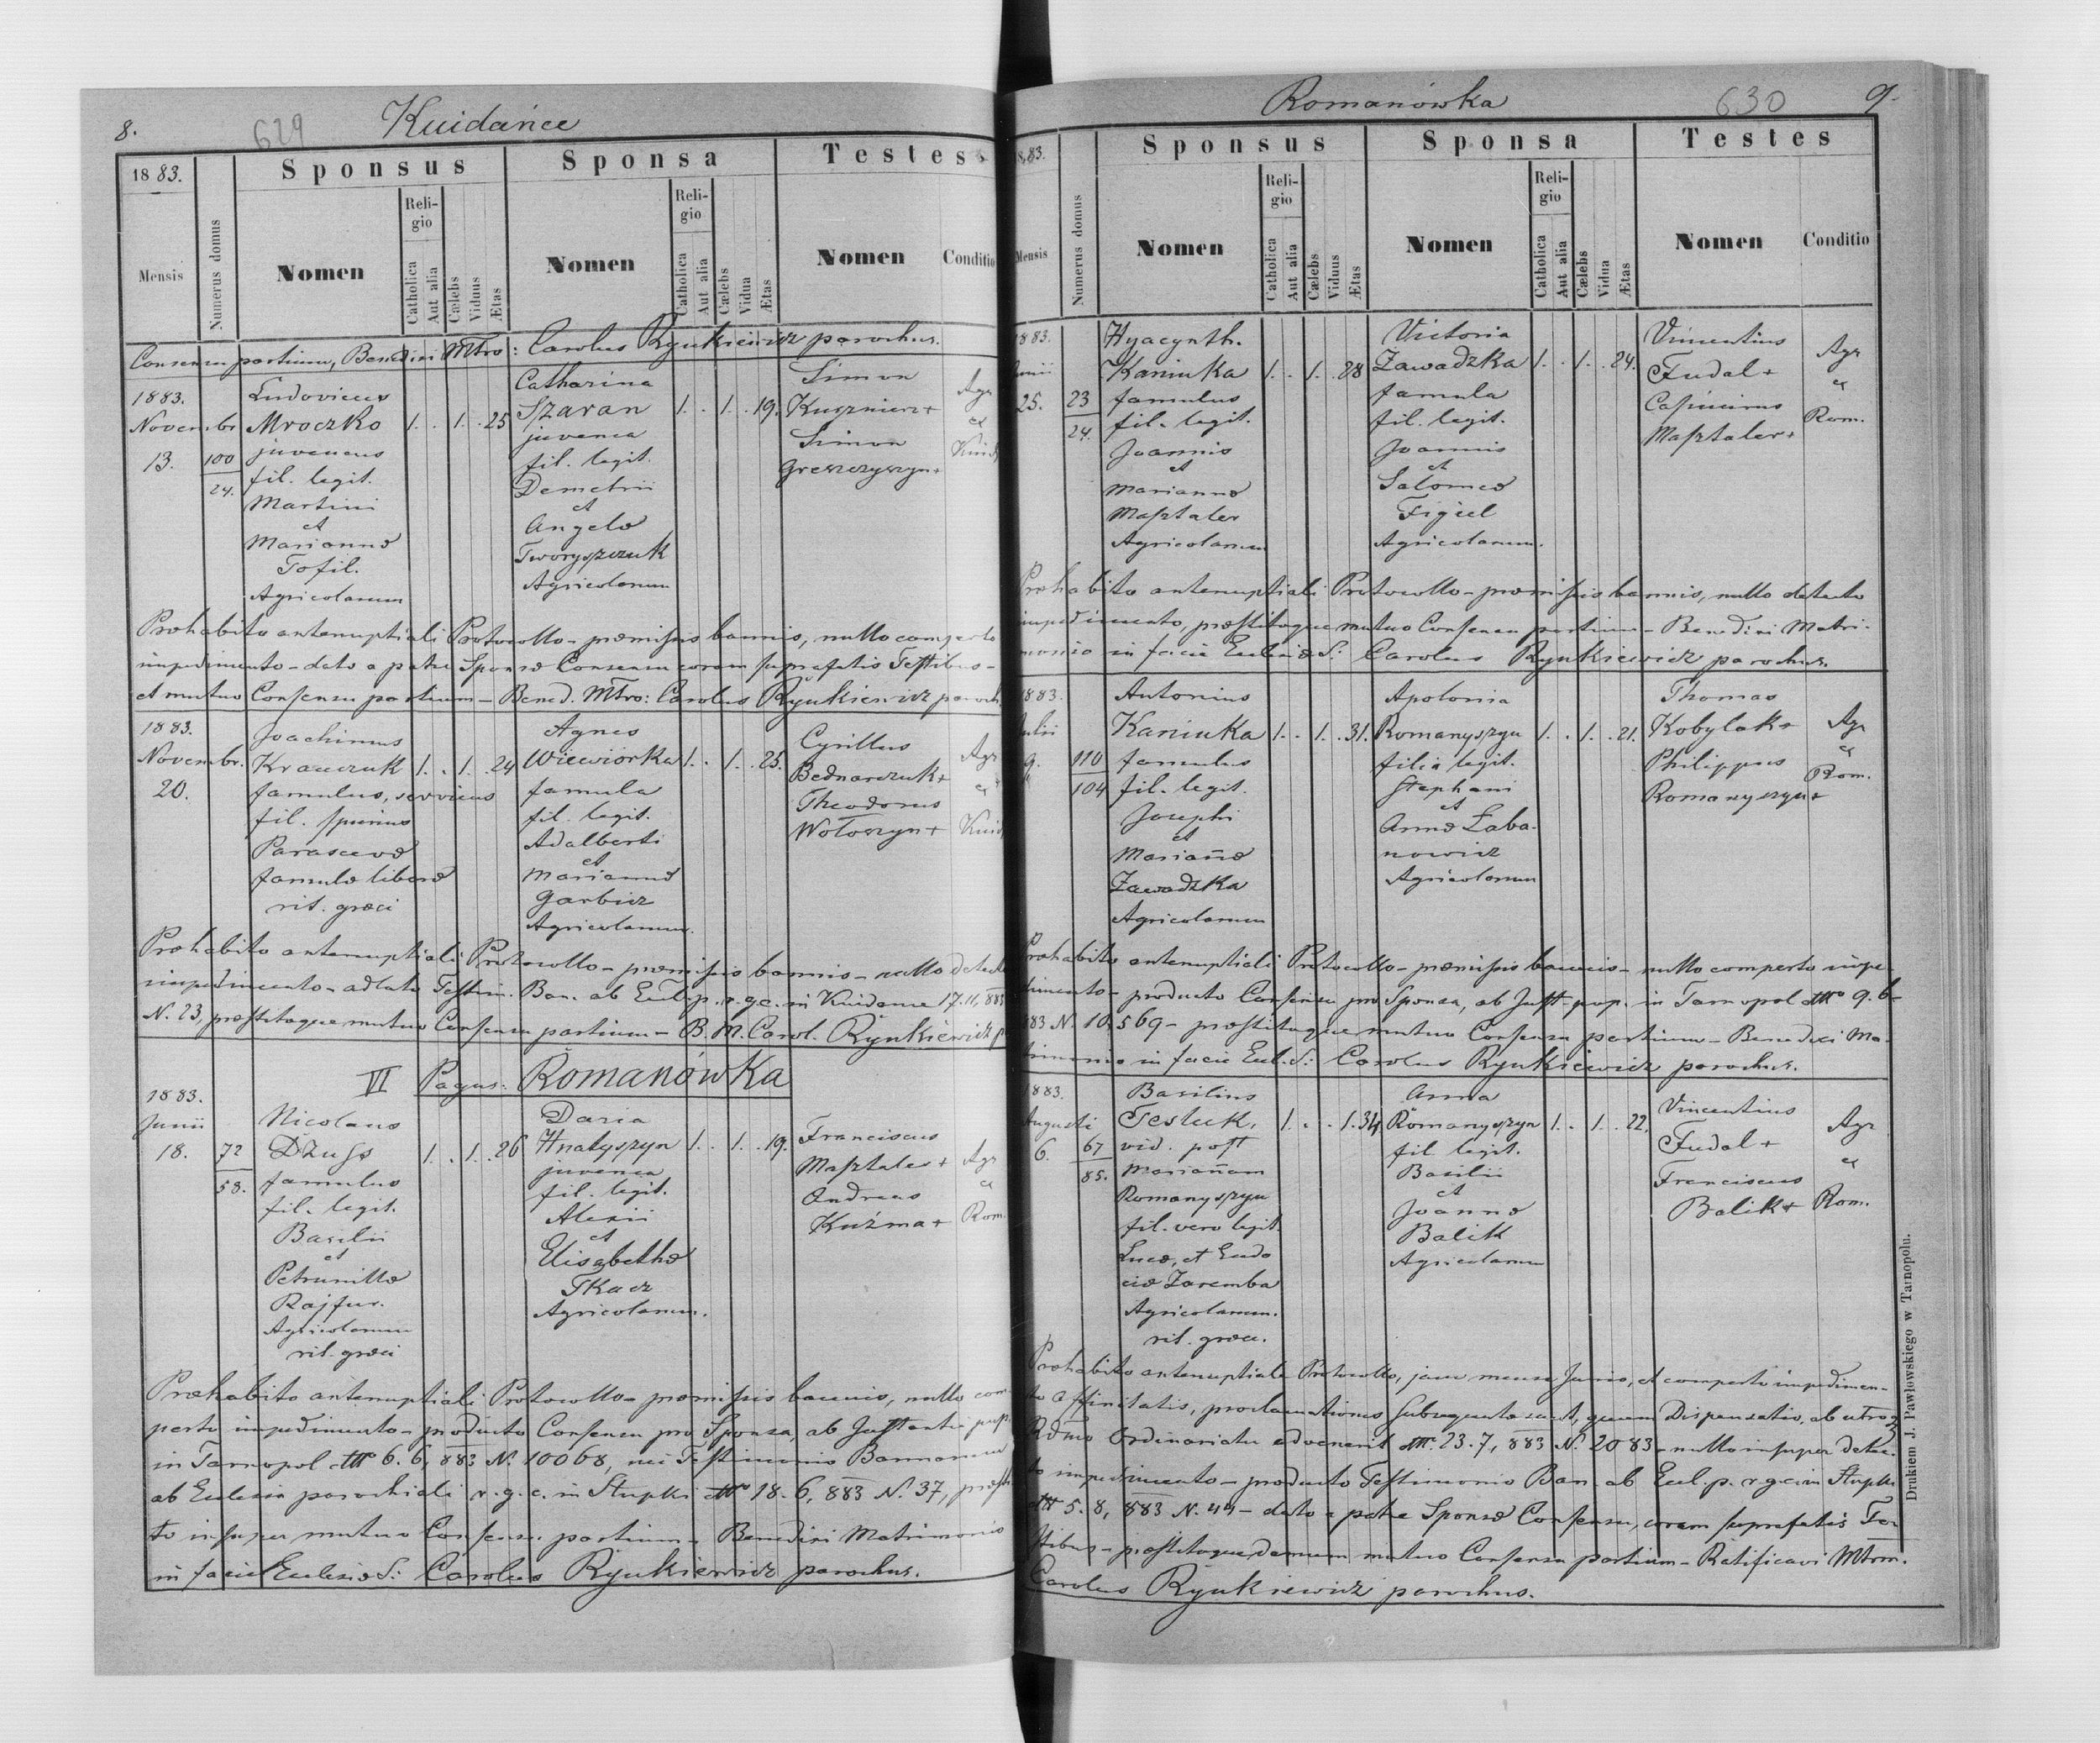 8.
629
Kuidańce
1883.
Sponsus
Sponsa
Testes
Mensis
Numerus domus
Nomen
Religio
Catholica
Aut alia
Cælebs
Viduus
Ætas
Nomen
Religio
Catholica
Aut alia
Cælebs
Vidua
Ætas
Nomen
Conditio
Consensu partium, Benedixi Mtro: Carolus Rynkiewicz parochus.
1883.
Novembr
13.
100
24.
Ludovicus
Mroczko
juvencus
fil. legit.
Martini
et
Mariannæ
Tofil.
Agricolarum
1. . 1. . 25
Catharina
Szaran
juvenca
fil. legit.
Demetrii
et
Angelæ
Tworyszczuk
Agricolarum
1. . 1. . 19.
Simon
Kusznierz+
Simon
Greszczyszyn+
Agr
ex
Kuid
Præhabito antenuptiali Protocollo - præmissis bannis, nullo comperto
impedimento - dato a patre Sponsæ Consensu coram suprafatis Testibus -
et mutuo Consensu partium - Bened. Mtro: Carolus Rynkiewicz paroch
1883.
Novembr.
20.
Joachimus
Krawczuk
famulus, servicus
fil. spurius
Parascevæ
famulæ liberæ
rit. græci
1. . 1. . 24
Agnes
Wiewiórka
famula
fil. legit.
Adalberti
et
Mariannæ
Garbicz
Agricolarum.
1. . 1. . 25.
Cyrillus
Bednarczuk+
Theodorus
Wołoszyn+
Agr
ex
Kuid
Præhabito antenuptiali Protocollo - præmissis bannis - nullo detecto
impedimento - adlato Testim. Ban. ab Eccl. p. r. g. c. in Kuidance 17.11, 883
N. 23, præstitoque mutuo Consensu partium - B. M. Carol. Rynkiewicz p
VI Pagus: Romanówka
1883.
Junii
18.
72
58.
Nicolaus
Dzuss
famulus
fil. legit.
Basilii
et
Petrunillæ
Rajfur.
Agricolarum
rit. græci
1. . 1. . 26
Daria
Hnatyszyn
juvenca
fil. legit.
Alexii
et
Elisabethæ
Tkacz
Agricolarum.
1. . 1. . 19.
Franciscus
Masztaler+
Andreas
Kuźma+
Agr
ex
Rom.
Præhabito antenuptiali Protocollo - præmissis bannis, nullo com-
perto impedimento - producto Consensu pro Sponsa, ab Justantia pup.
in Tarnopol dtto 6.6, 883 N. 10068, nec Testimonio Bannorum
ab Ecclesia parochiali r. g. c. in Stupki dtto 18.6, 883 N. 37, præsti
to insuper mutuo Consensu partium - Benedixi Matrimonio
in facie Ecclesiæ S: Carolus Rynkiewicz parochus.
Romanówka
630
9.
1883.
Sponsus
Sponsa
Testes
Mensis
Numerus domus
Nomen
Religio
Catholica
Aut alia
Cælebs
Viduus
Ætas
Nomen
Religio
Catholica
Aut alia
Cælebs
Vidua
Ætas
Nomen
Conditio
1883.
Junii
25.
23
24.
Hyacynth.
Kaniuka
famulus
fil. legit.
Joannis
et
Mariannæ
Masztaler
Agricolarum
1. . 1. . 28
Victoria
Zawadzka
famula
fil. legit.
Joannis
et
Salomeæ
Figiel
Agricolarum.
1. . 1. . 24.
Vincentius
Fudal+
Casimirus
Masztaler+
Agr
ex
Rom.
Præhabito antenuptiali Protocollo - præmissis bannis, nullo detecto
impedimento, præstitoque mutuo Consensu partium - Benedixi Matri-
monio in facie Ecclesiæ S: Carolus Rynkiewicz parochus.
1883.
Julii
9.
110
104
Antonius
Kaniuka
famulus
fil. legit.
Josephi
et
Mariañæ
Zawadzka
Agricolarum
1. . 1. . 31.
Apolonia
Romanyszyn
filia legit.
Stephani
et
Annæ Łaba-
nowicz
Agricolarum
1. . 1. . 21.
Thomas
Kobylak+
Philippus
Romanyszyn+
Agr
ex
Rom.
Præhabito antenuptiali Protocollo - præmissis bannis - nullo comperto impe-
dimento - producto Consensu pro Sponsa, ab Just. pup. in Tarnopol dtto 9.6-
883 N. 10,569 - præstitoque mutuo Consensu partium - Benedixi Ma-
trimonio in facie Eccl. S: Carolus Rynkiewicz parochus.
1883.
Augusti
6.
67
85.
Basilius
Tesluk,
vid. post
Mariañam
Romanyszyn
fil. vero legit.
Lucæ, et Eudo
ciæ Zaremba
Agricolarum.
rit. græci.
1. . . 1. 34
Anna
Romanyszyn
fil legit.
Basilii
et
Joannæ
Balik
Agricolarum
1. . 1. . 22.
Vincentius
Fudal+
Franciscus
Balik+
Agr
ex
Rom.
Præhabito antenuptiale Protocollo, jam mense Junio, et comperto impedimen-
to affinitatis, proclamationes subsequutæ sunt, quum Dispensatio, ab utroq
Rdmo Ordinariatu advenerit dtto. 23.7, 883 N. 2083 - nullo insuper detec-
to impedimento - producto Testimonio Ban ab Eccl. p. r. g. c. in Stupki
dtto 5.8, 883 N. 44 - dato a patre Sponsæ Consensu, coram suprafatis Te-
stibus - præstitoque demum mutuo Consensu partium - Ratificavi Mtrm.
Carolus Rynkiewicz parochus.
Drukiem J. Pawłowskiego w Tarnopolu.